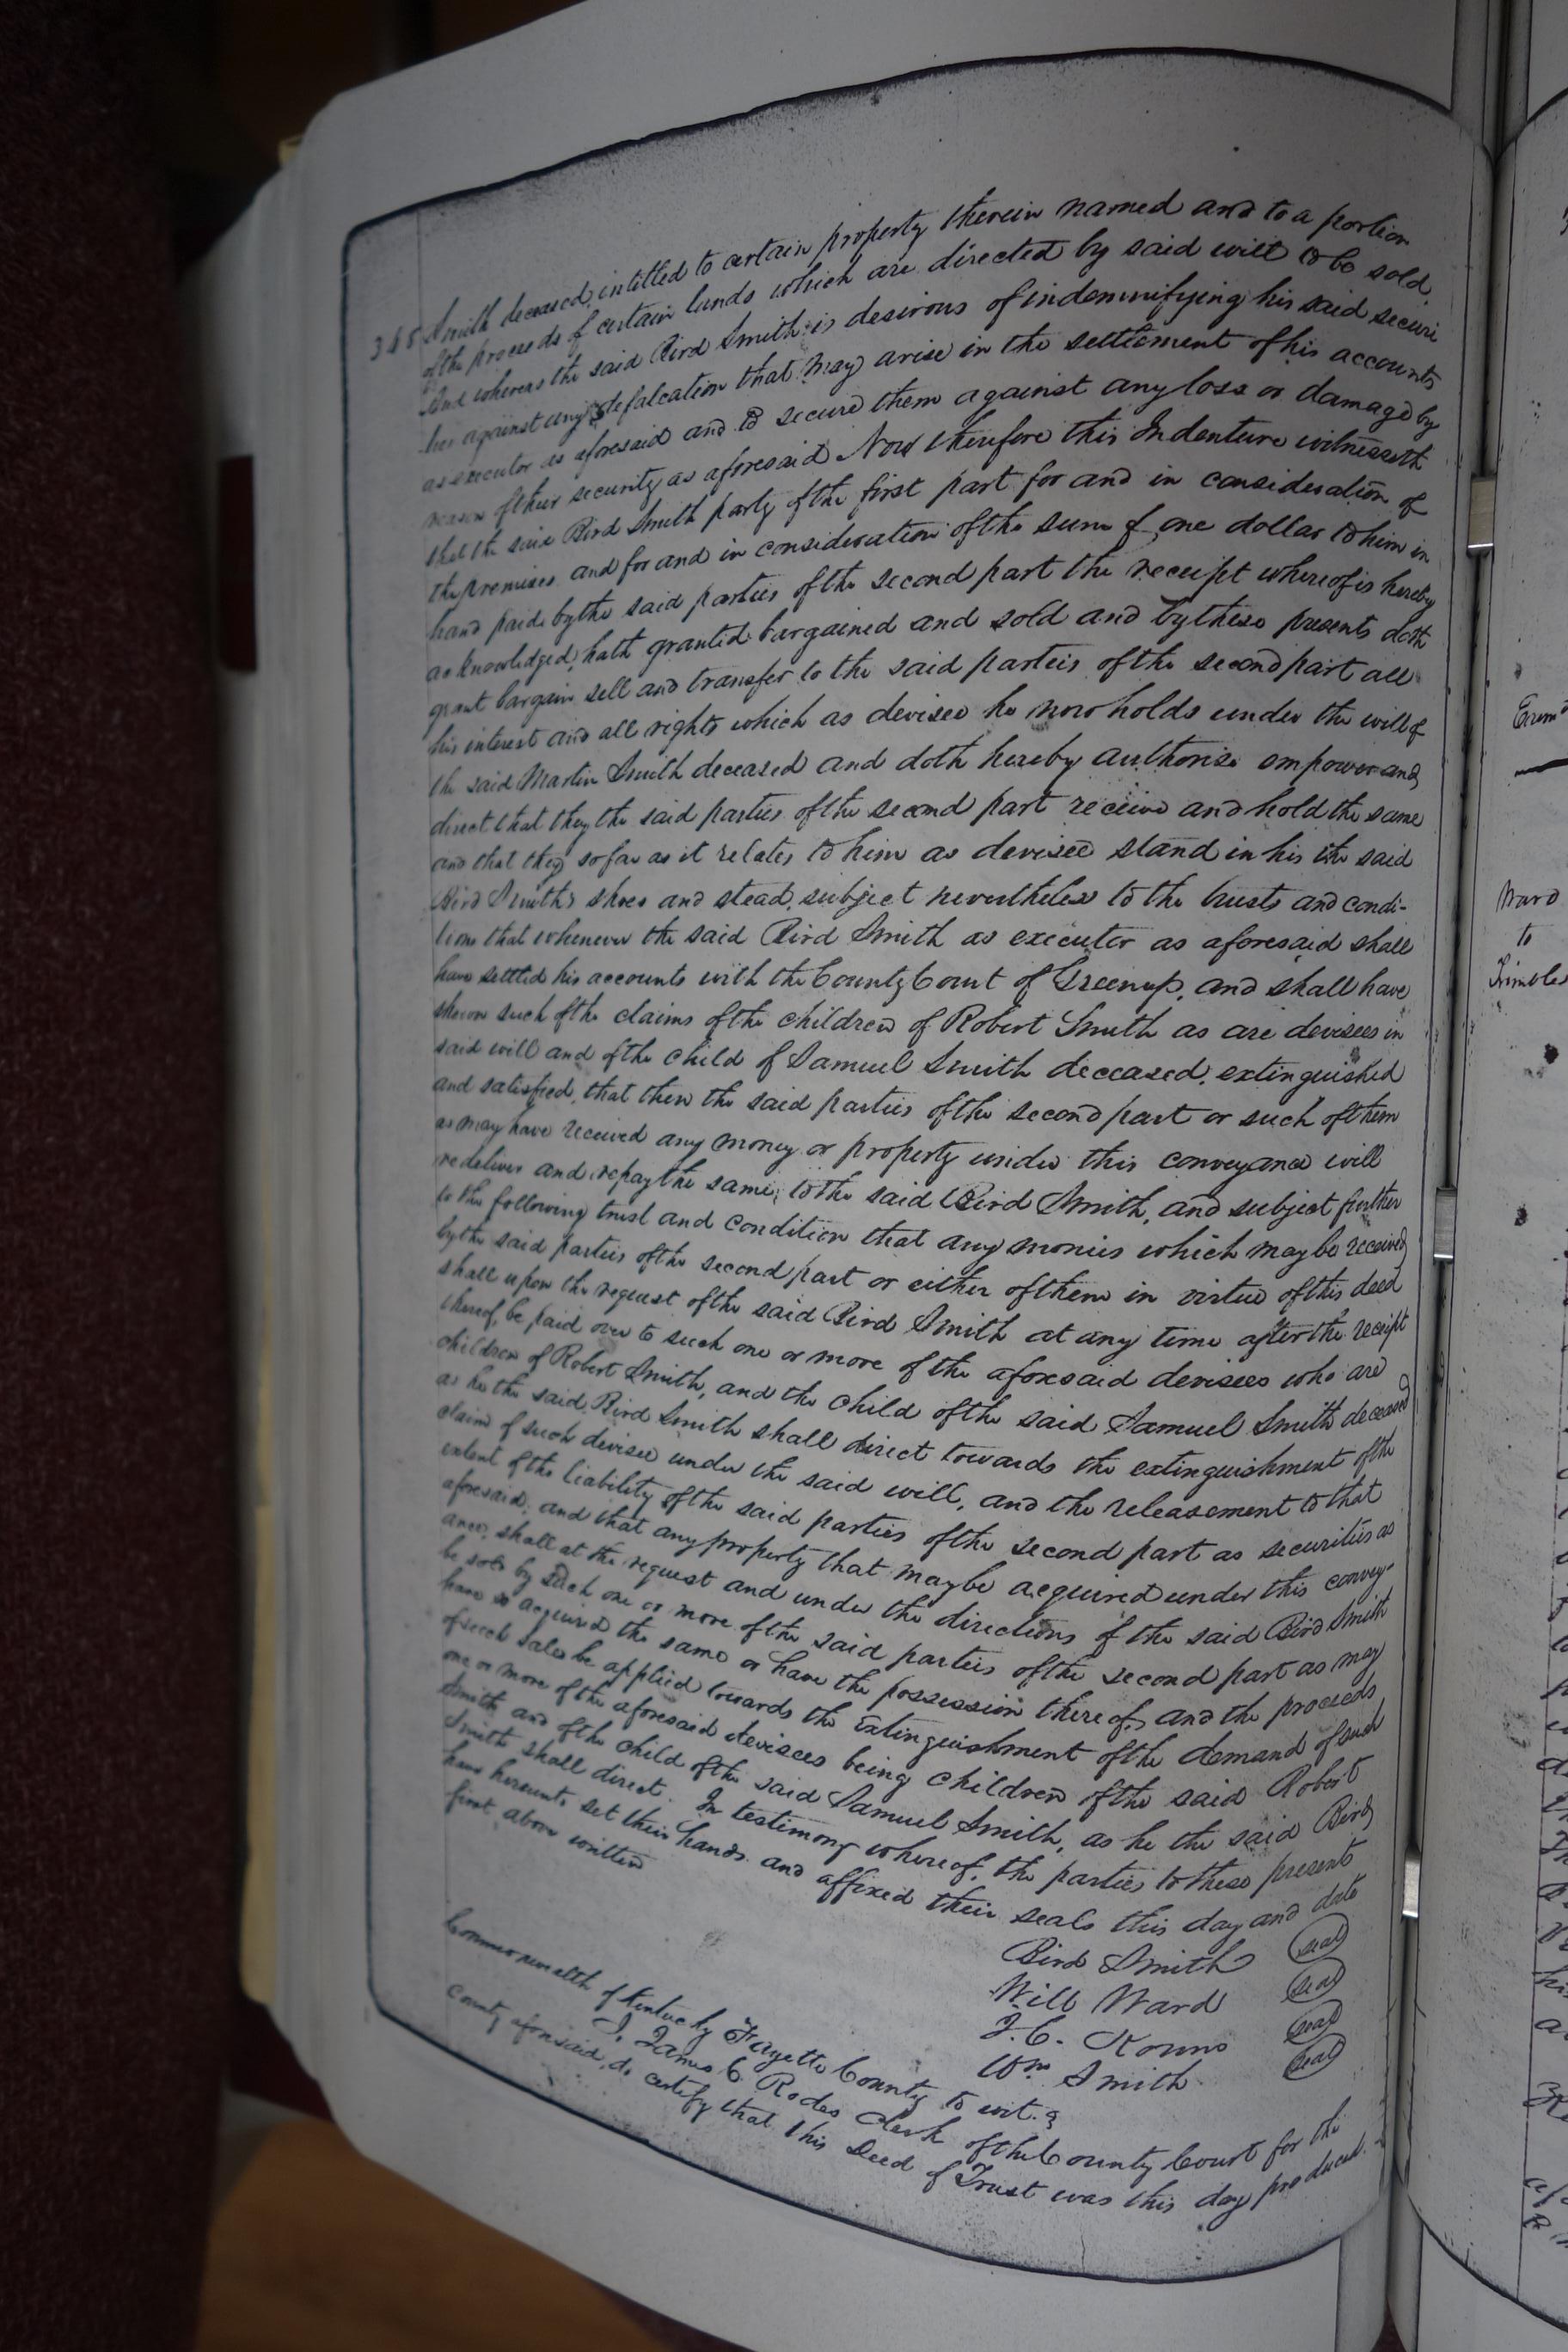 Smith deceased, intitled to certain property therein named and to a portion
of the proceeds of certain lands which are directed by said will to be sold,
And whereas the said Bird Smith is desirous of indemnifying his said securi
ties against any defalcation that may arise in the settlement of his accounts
as executor as aforesaid and to secure them against any loss or damage by
reason of their security as aforesaid Now therefore this Indenture witnesseth
that the said Bird Smith party of the first part for and in consideration of
the premises and for and in consideration of the sum of one dollar to him in
hand paid by the said parties of the second part the receipt whereof is hereby
acknowledged, hath granted bargained and sold and by these presents doth
grant bargain sell and transfer to the said parteis of the second part all
his interest and all rights which as devisee he now holds under the will of
the said Martin Smith deceased and doth hereby authorise empower and
direct that they the said parties of the second part receive and hold the same
and that they so far as it relates to him as devisee stand in his the said
Bird Smith's shoes and stead, subject nevertheless to the trusts and condi-
tions that whenever the said Bird Smith as executor as aforesaid shall
have settled his accounts with the County Court of Greenup, and shall have
shewn such of the claims of the children of Robert Smith as are devisees in
said will and of the child of Samuel Smith deceased, extinguished
and satisfied, that then the said parties of the second part or such of them
as may have received any money or property under this conveyance will
redeliver and repay the same, to the said Bird Smith, and subject further
to the following trust and condition that any monies which may be received
by the said parties of the second part or either of them in virtue of this deed
shall upon the request of the said Bird Smith at any time after the receipt
thereof, be paid over to such one or more of the aforesaid devisees who are
children of Robert Smith, and the child of the said Samuel Smith deceased
as he the said Bird Smith shall direct towards the extinguishment of the
claim of such devisee under the said will, and the releasement to that
extent of the liability of the said parties of the second part as securities as
aforesaid, and that any property that may be acquired under this convey-
ance, shall at the request and under the directions of the said Bird Smith
be sold by such one or more of the said parties of the second part as may
have so acquired the same or have the possession thereof, and the proceeds
of such sales be applied towards the extinguishment of the demand of such
one or more of the aforesaid devisees being children of the said Robert
Smith and of the child of the said Samuel Smith, as he the said Bird
Smith shall direct. In testimony whereof, the parties to these presents
have hereunto set their hands and affixed their seals this day and date
first above written
Bird Smith seal
Will Ward seal
J. C. Kouns seal
Wm Smith seal
Commonwealth of Kentucky Fayette County to wit. &
I, James C. Rodes Clerk of the County Court for the
County aforesaid, do certify that this Deed of Trust was this day produced
Ward
to
Trimble